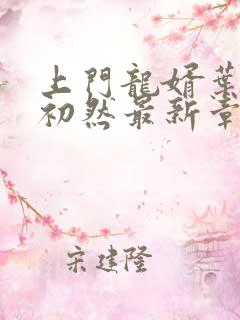 上門龍婿葉
初然最新章
宋建隆